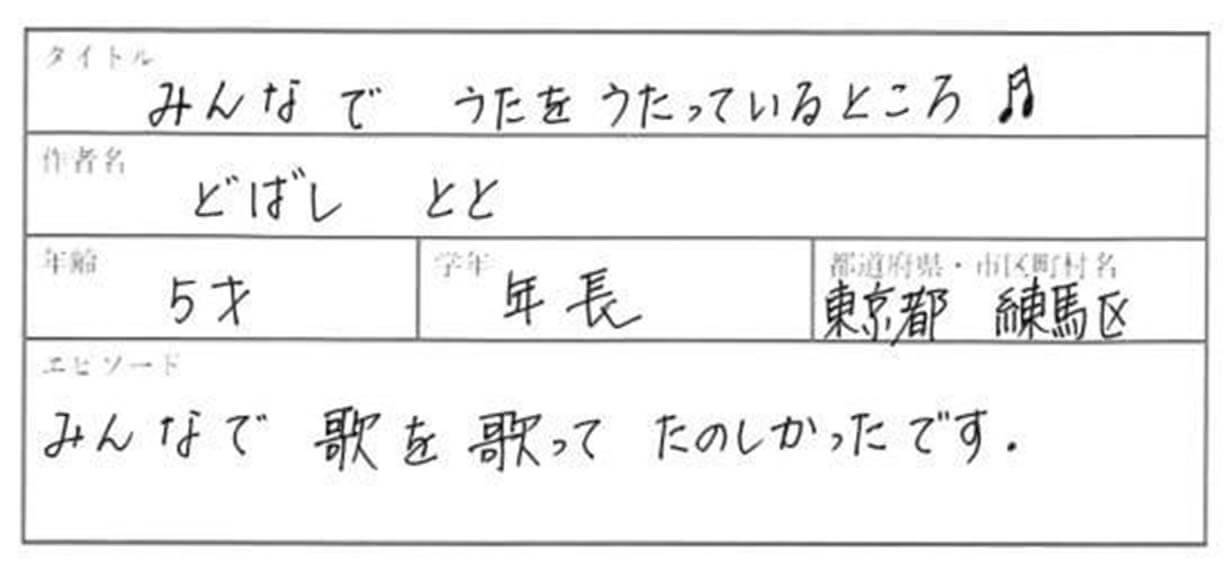 タイトル
みんなで うたをうたっているところ♬
作者名
どばし とと
年齢 学年 都道府県・市区町村名
5才 年長 東京都 練馬区
エピソード
みんなで 歌を歌って たのしかったです.